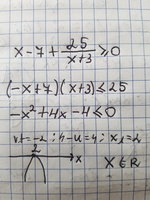 x - 7 + 25/(x+3) ≥ 0
(-x+7)(x+3) ≤ 25
-x² + 4x - 4 ≤ 0
x₁ = 2
2
x
x ∈ R